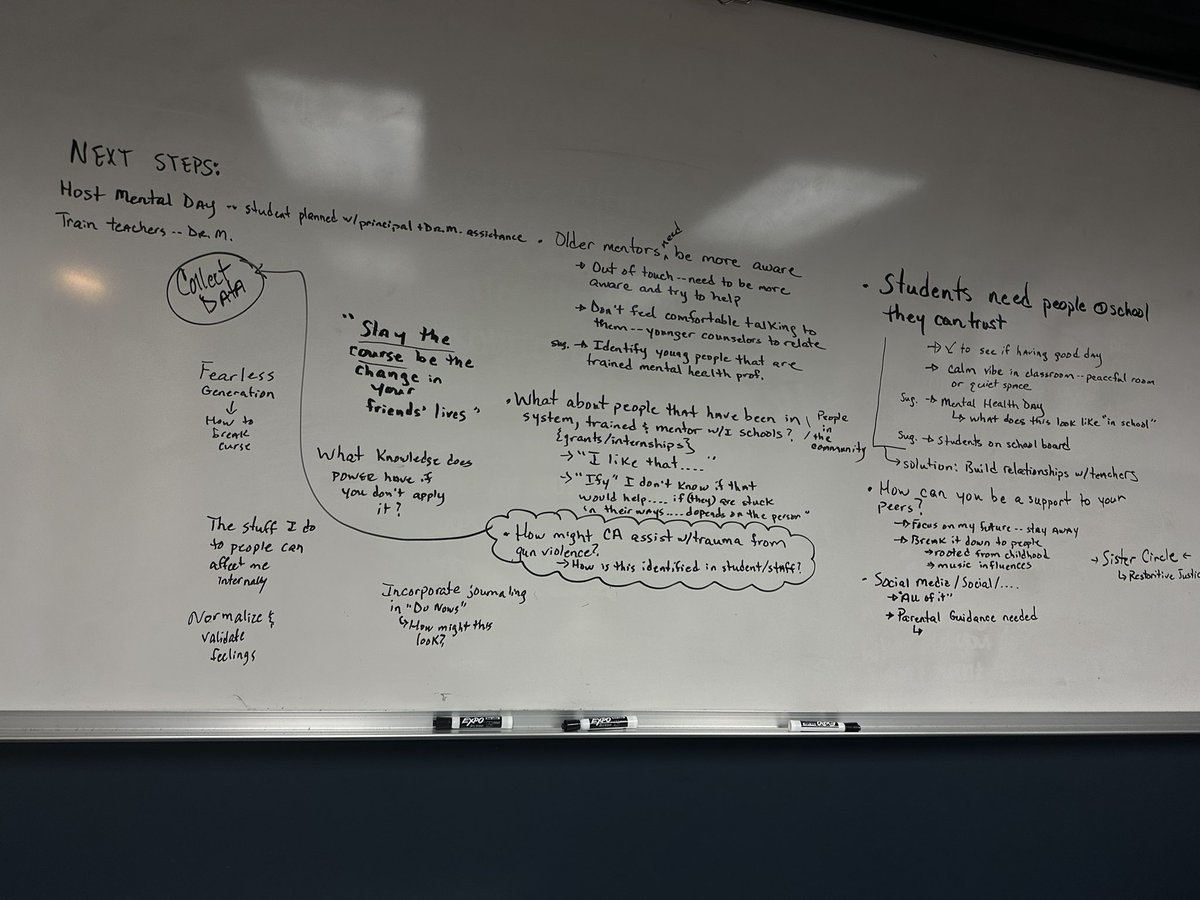 NEXT STEPS:
Host Mental Day -- student planned w/principal + Dr.M. assistance
Train teachers -- Dr. M.
Collect
DATA
Fearless
Generation
↓
How to
break
curse
The stuff I do
to people can
affect me
internally
Normalize &
validate
feelings
"Stay the
course be the
change in
your
friends' lives"
What Knowledge does
POWER have if
you don't apply
it?
Incorporate journaling
in "Do Nows"
↳ How might this
look?
• Older mentors need be more aware
→ Out of touch -- need to be more
aware and try to help
→ Don't feel comfortable talking to
them -- younger counselors to relate
sug. → Identify young people that are
trained mental health prof.
• What about people that have been in
system, trained & mentor w/I schools?
{grants/internships}
People
in
the
community
→ "I like that....
→ "Ify" I don't know if that
would help.... if (they) are stuck
in their ways .... depends on the person"
• How might CA assist w/trauma from
gun violence?
→ How is this identified in student/staff?
• Students need people @ school
they can trust
→ ✓ to see if having good day
→ calm vibe in classroom -- peaceful room
or quiet space
Sug. → Mental Health Day
↳ what does this look like "in school"
Sug. → Students on school board
→ solution: Build relationships w/teachers
• How can you be a support to your
peers?
→ Focus on my future -- stay away
→ Break it down to people
→ rooted from childhood
→ music influences
• Social media / Social / ....
→ "All of it"
→ Parental Guidance needed
↳
→ Sister Circle ←
↳ Restoritive Justic
EXPO
EXPO
EXPO